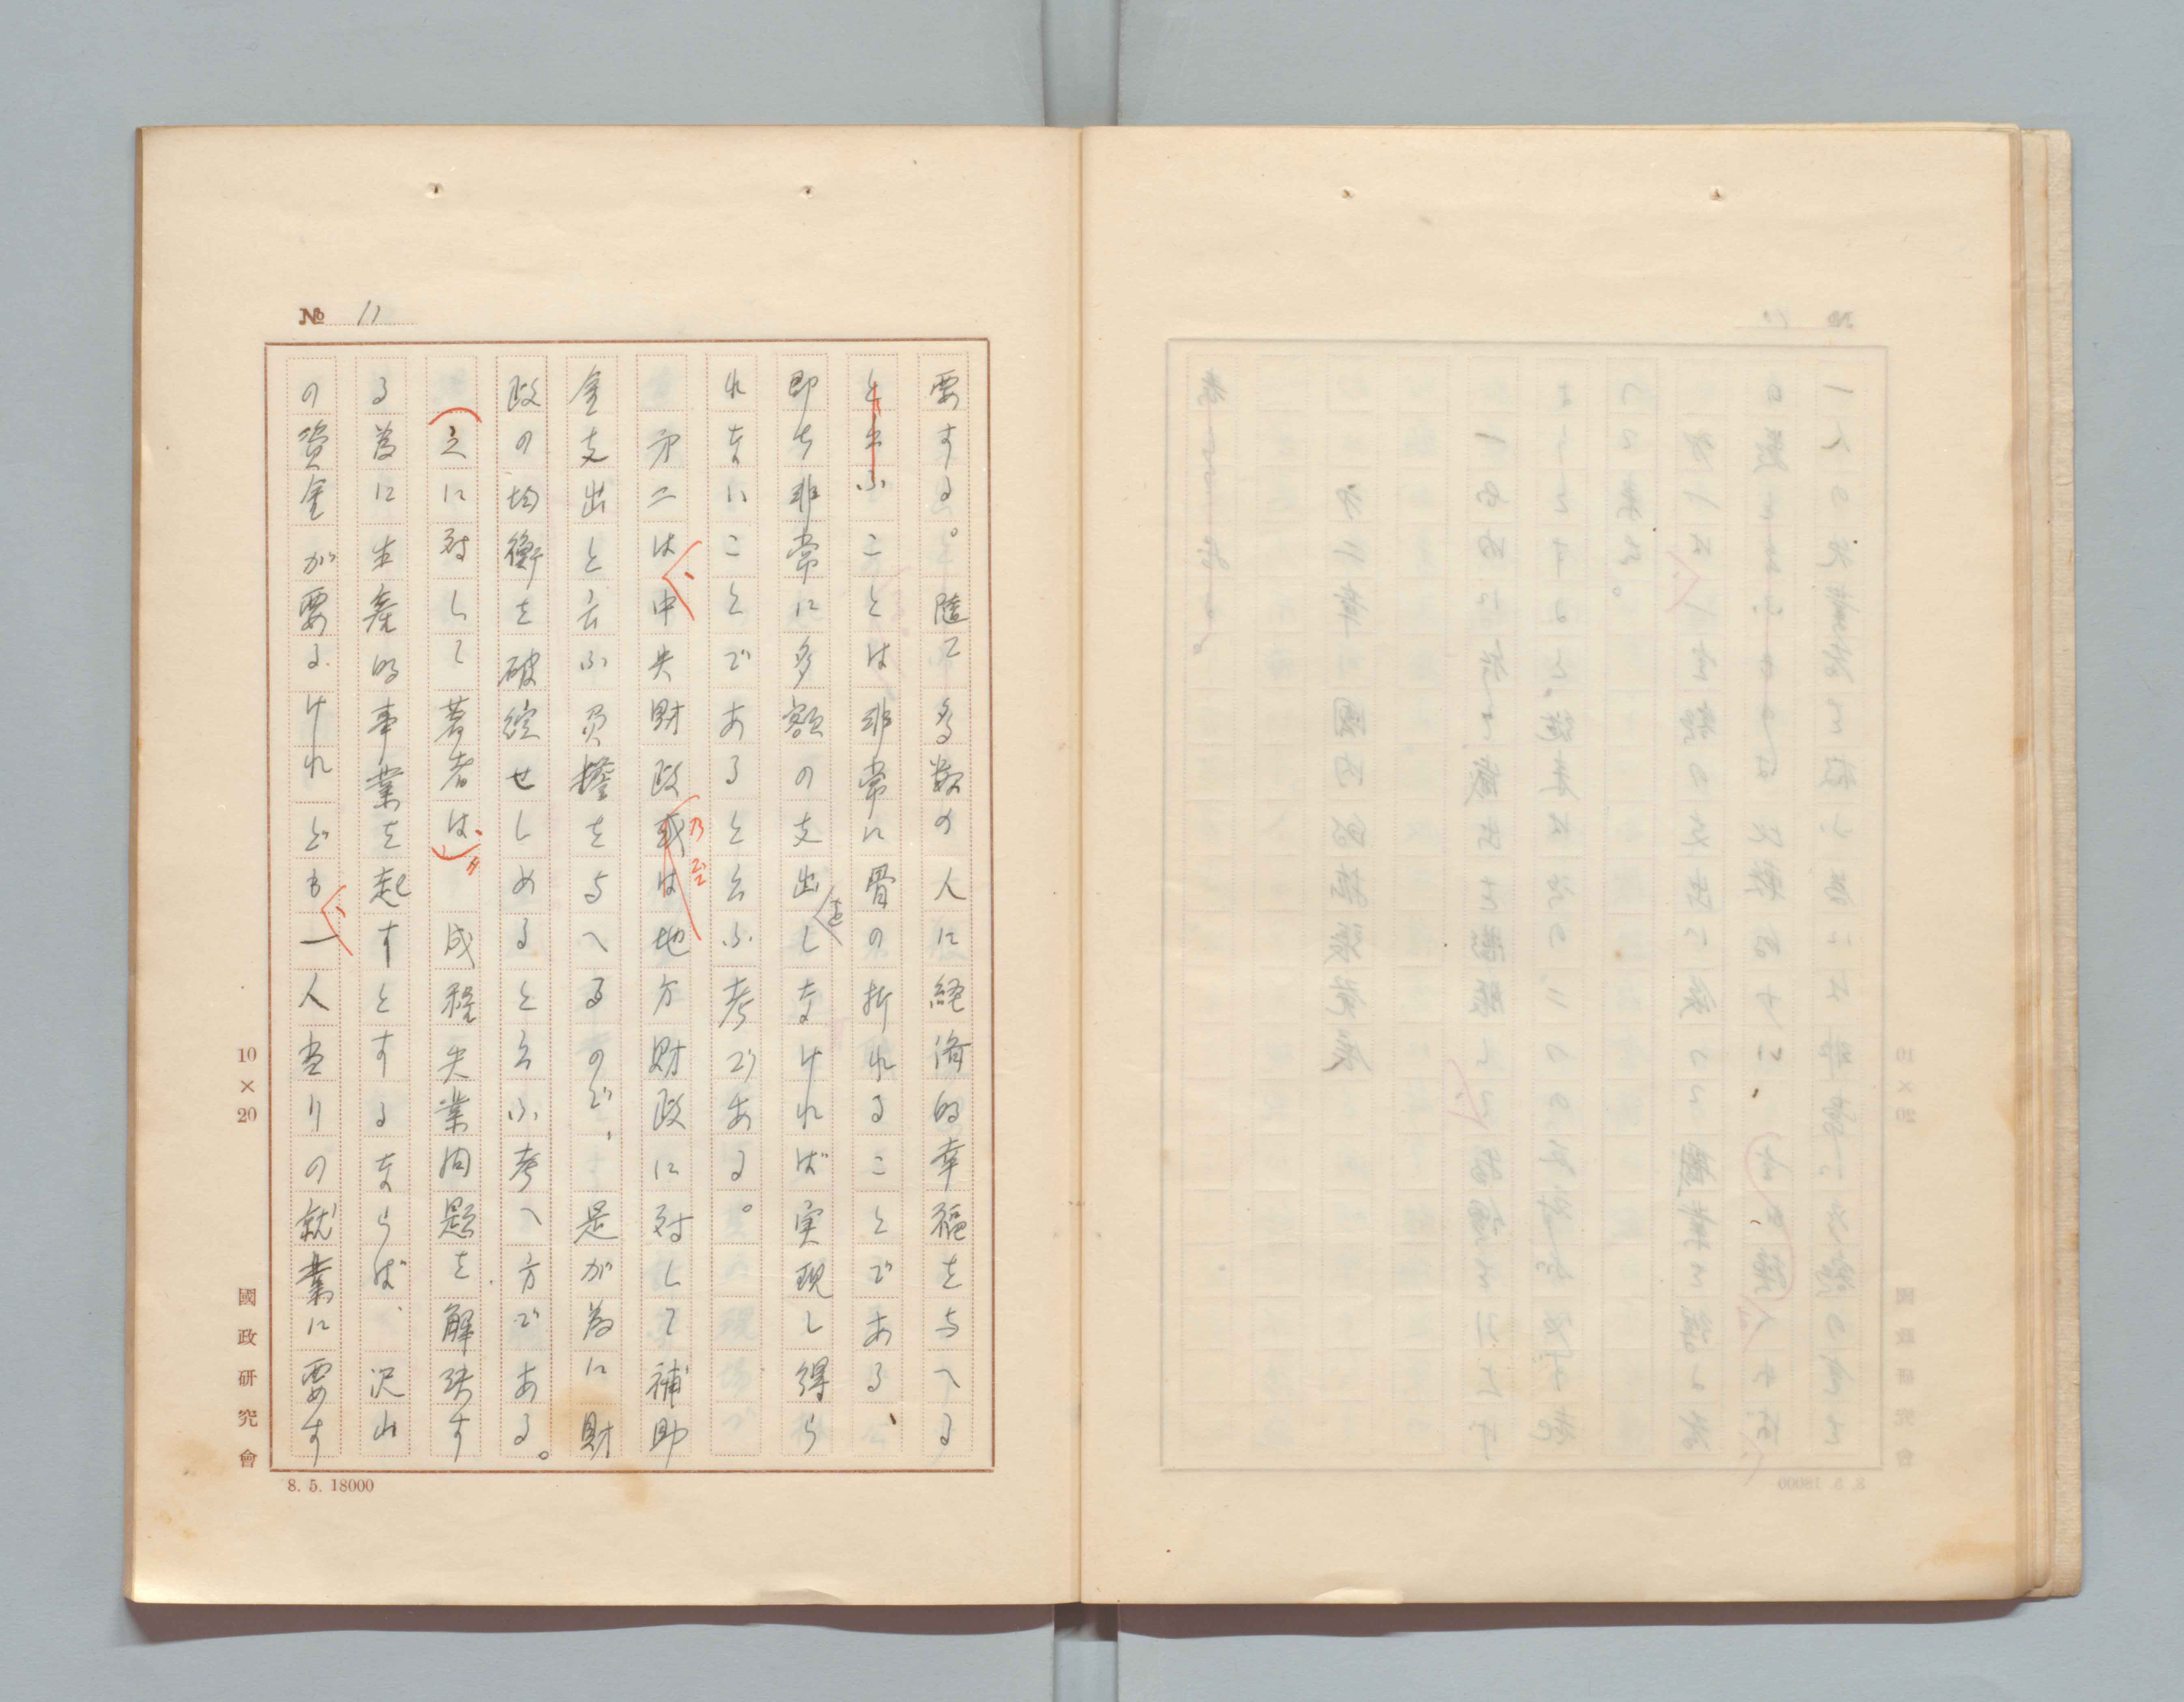 № 11
要する。随て多数の人に経済的幸福を与へる
と云ふことは非常に骨の折れることである、
即ち非常に多額の支出しなければ実現し得ら
を
れないことであると云ふ考である。
第二は中央財政或は地方財政に対して補助
、
乃至
金支出と云ふ負擔を与へるので、是が為に財
政の均衡を破綻せしめると云ふ考へ方である。
之に対して著者は、成程失業問題を解決す
る為に生産的事業を起すとするならば、沢山
の資金が要るけれども一人当りの就業に要す
、
10×20
國政研究會
8. 5. 18000